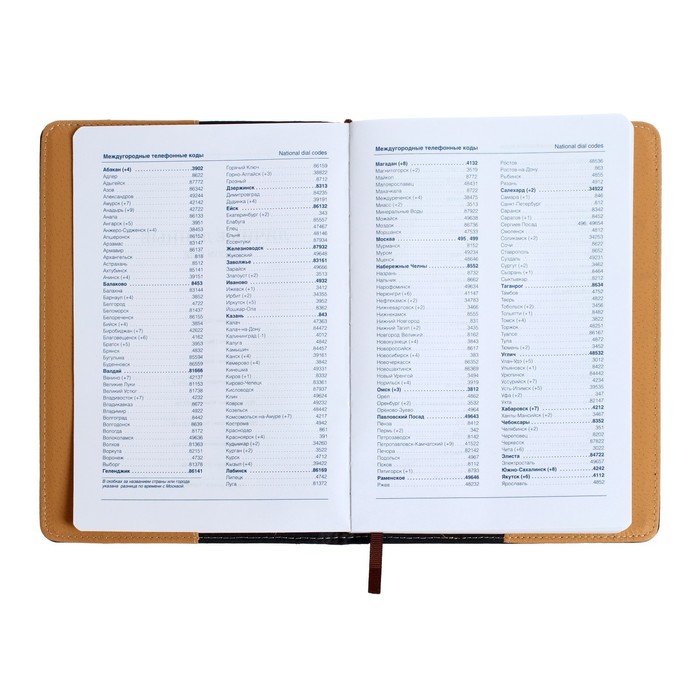 Междугородные телефонные коды National dial codes
Абакан (+4) 3902
Адлер 8622
Адыгейск 87772
Азов 86342
Александров 49244
Амурск (+7) 42142
Анадырь (+9) 42722
Анапа 86133
Ангарск (+5) 3951
Анжеро-Судженск (+4) 38453
Апшеронск 86152
Арзамас 83147
Армавир 86137
Архангельск 818
Астрахань 8512
Ахтубинск 85141
Ачинск (+4) 39151
Балаково 8453
Балахна 83144
Барнаул (+4) 3852
Белгород 4722
Беломорск 81437
Белореченск 86155
Бийск (+4) 3854
Биробиджан (+7) 42622
Благовещенск (+6) 4162
Братск (+5) 3953
Брянск 4832
Бугульма 85594
Буденновск 86559
Валдай 81666
Ванино (+7) 42137
Великие Луки 81153
Великий Устюг 81738
Владивосток (+7) 4232
Владикавказ 8672
Владимир 4922
Волгоград 8442
Волгодонск 8639
Вологда 8172
Волоколамск 49636
Волхов 81363
Воркута 82151
Воронеж 4732
Выборг 81378
Геленджик 86141
В скобках за названием страны или города
указана разница по времени с Москвой.
Горячий Ключ 86159
Горно-Алтайск (+3) 38822
Грозный 8712
Дзержинск 8313
Димитровград 84235
Дудинка (+4) 39191
Ейск 86132
Екатеринбург (+2) 343
Елабуга 85557
Елец 47467
Ельня 48146
Ессентуки 87934
Железноводск 87932
Жуковский 49648
Заволжье 83161
Зарайск 49666
Златоуст (+2) 3513
Иваново 4932
Ижевск (+1) 3412
Ирбит (+2) 34355
Иркутск (+5) 3952
Йошкар-Ола 8362
Казань 843
Калач 47363
Калач-на-Дону 84472
Калининград (-1) 4012
Калуга 4842
Камышин 84457
Канск (+4) 39161
Кемерово (+4) 3842
Кинешма 49331
Киров (+1) 8332
Кирово-Чепецк 83361
Кисловодск 87937
Клин 49624
Ковров 49232
Козельск 48442
Комсомольск-на-Амуре (+7) 4217
Кострома 4942
Краснодар 861
Красноярск (+4) 391
Кудымкар (+2) 34260
Курган (+2) 3522
Курск 4712
Кызыл (+4) 39422
Лабинск 86169
Липецк 4742
Луга 81372
Междугородные телефонные коды National dial codes
Магадан (+8) 4132
Магнитогорск (+2) 3519
Майкоп 8772
Малоярославец 48431
Махачкала 8722
Междуреченск (+4) 38475
Миасс (+2) 3513
Минеральные Воды 87922
Можайск 49638
Моздок 86736
Моршанск 47533
Москва 495, 499
Мурманск 8152
Муром 49234
Мценск 48646
Набережные Челны 8552
Назрань 8732
Нальчик 8662
Нарофоминск 49634
Нерюнгри (+6) 41147
Нефтекамск (+2) 34783
Нижневартовск (+2) 3466
Нижнекамск 8555
Нижний Тагил (+2) 3435
Нижний Новгород 831
Новгород Великий 8162
Новокузнецк (+4) 3843
Новороссийск 8617
Новосибирск (+4) 383
Новочеркасск 86352
Новошахтинск 86369
Новый Уренгой 3494
Норильск (+4) 3919
Омск (+3) 3812
Орел 4862
Оренбург (+2) 3532
Орехово-Зуево 4964
Павловский Посад 49643
Пенза 8412
Пермь (+2) 342
Петрозаводск 8142
Петропавловск-Камчатский (+9) 41522
Печора 82142
Подольск 4967
Псков 8112
Пятигорск (+1) 8793
Раменское 49646
Ржев 48232
Ростов 48536
Ростов-на-Дону 863
Рыбинск 4855
Рязань 4912
Салехард (+2) 34922
Самара (+1) 846
Санкт Петербург 812
Саранск 8342
Саратов (+1) 8452
Сергиев Посад 496, 49654
Смоленск 4812
Соликамск (+2) 34253
Сочи 8622
Ставрополь 8652
Суздаль 49231
Сургут (+2) 3462
Сызрань (+1) 8464
Сыктывкар 8212
Таганрог 8634
Тамбов 4752
Тверь 4822
Тобольск (+2) 3456
Тольятти (+1) 8482
Томск (+4) 3822
Торжок 48251
Туапсе 86167
Тула 4872
Тюмень (+2) 3452
Углич 48532
Улан-Удэ (+5) 3012
Ульяновск (+1) 8422
Урюпинск 84442
Уссурийск (+7) 4234
Усть-Илимск (+5) 39535
Уфа (+2) 347
Ухта 82147
Хабаровск (+7) 4212
Ханты-Мансийск (+2) 3467
Чебоксары 8352
Челябинск (+2) 351
Череповец 8202
Черкесск 87822
Чита (+6) 3022
Элиста 84722
Электросталь 49657
Южно-Сахалинск (+8) 4242
Якутск (+6) 4112
Ярославль 4852